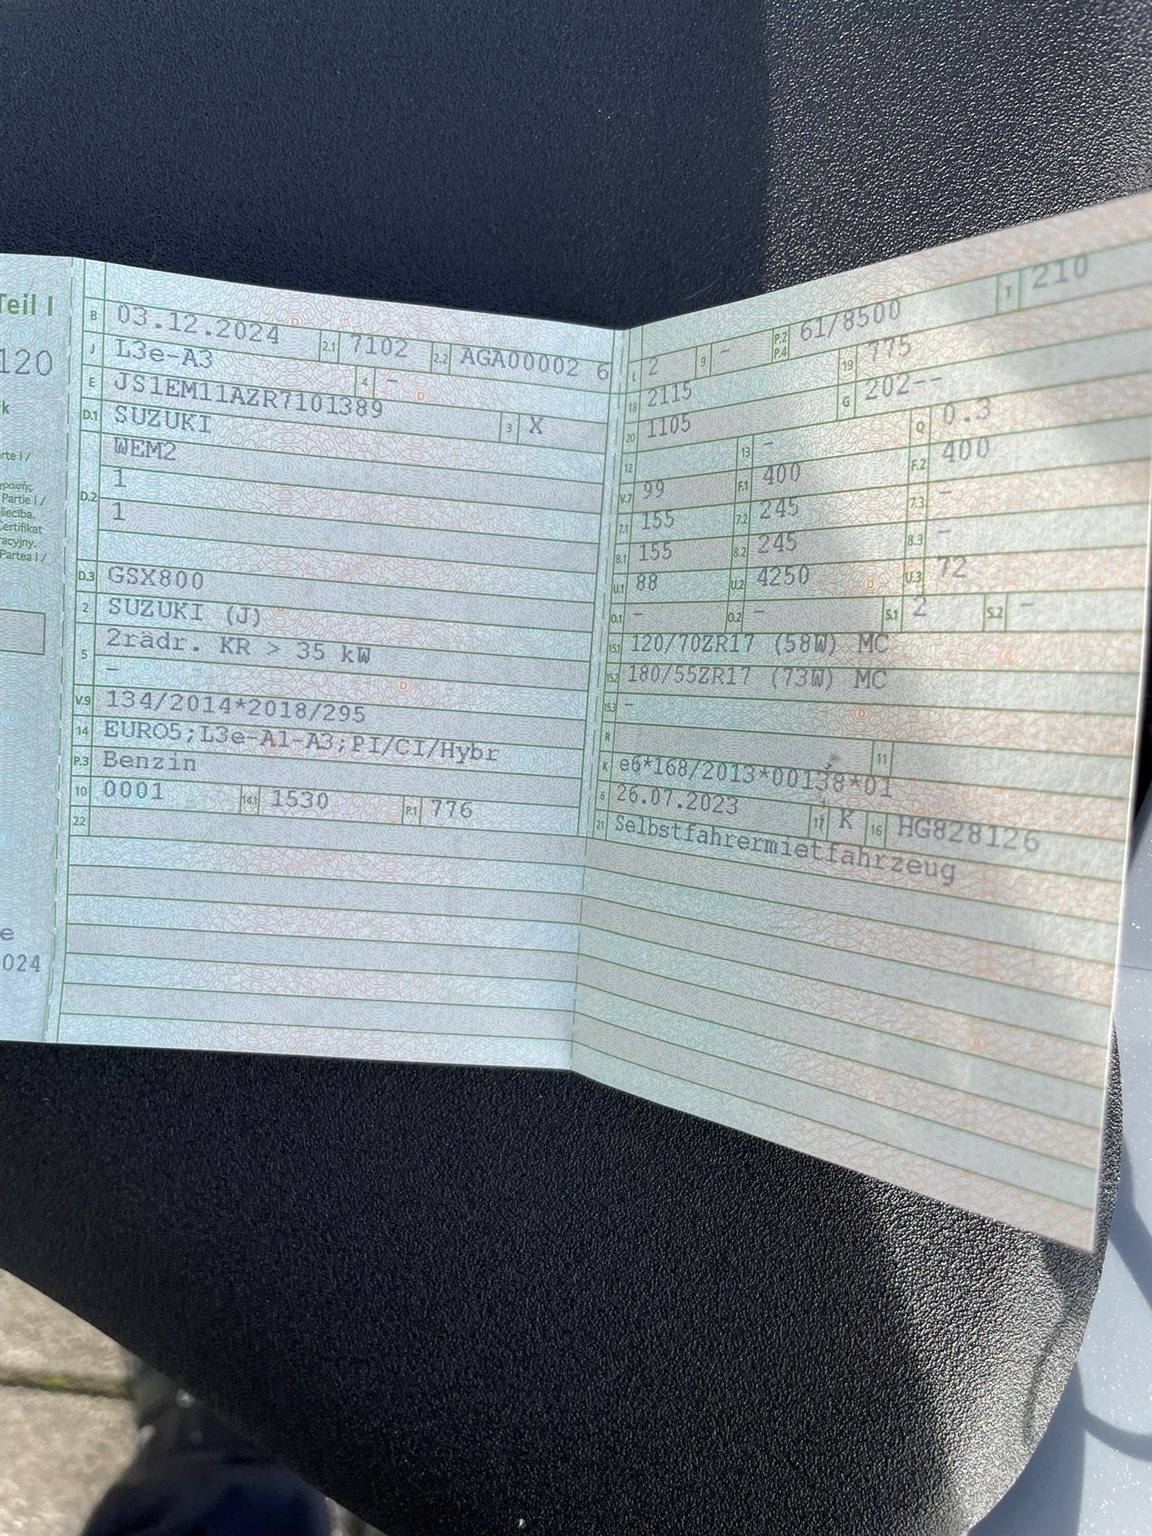 Teil I
120
k
arte I /
Partie I /
Certifikat
Partea I /
e
024
B 03.12.2024 2.1 7102 2.2 AGA00002 6
J L3e-A3 4 -
E JS1EM11AZR7101389 3 X
D.1 SUZUKI
D.2 WEM2
1
1
D.3 GSX800
2 SUZUKI (J)
5 2rädr. KR > 35 kW
-
V.9 134/2014*2018/295
14 EURO5;L3e-A1-A3;PI/CI/Hybr
P.3 Benzin
10 0001 14.1 1530 P.1 776
22
L 2 9 - P.2 P.4 61/8500 T 210
18 2115 19 775
20 1105 G 202--
12 13 - Q 0.3
V.7 99 F.1 400 F.2 400
7.1 155 7.2 245 7.3 -
8.1 155 8.2 245 8.3 -
U.1 88 U.2 4250 U.3 72
O.1 - O.2 - S.1 2 S.2 -
15.1 120/70ZR17 (58W) MC
15.2 180/55ZR17 (73W) MC
15.3 -
R 11
K e6*168/2013*00138*01
6 26.07.2023 17 K 16 HG828126
21 Selbstfahrermietfahrzeug